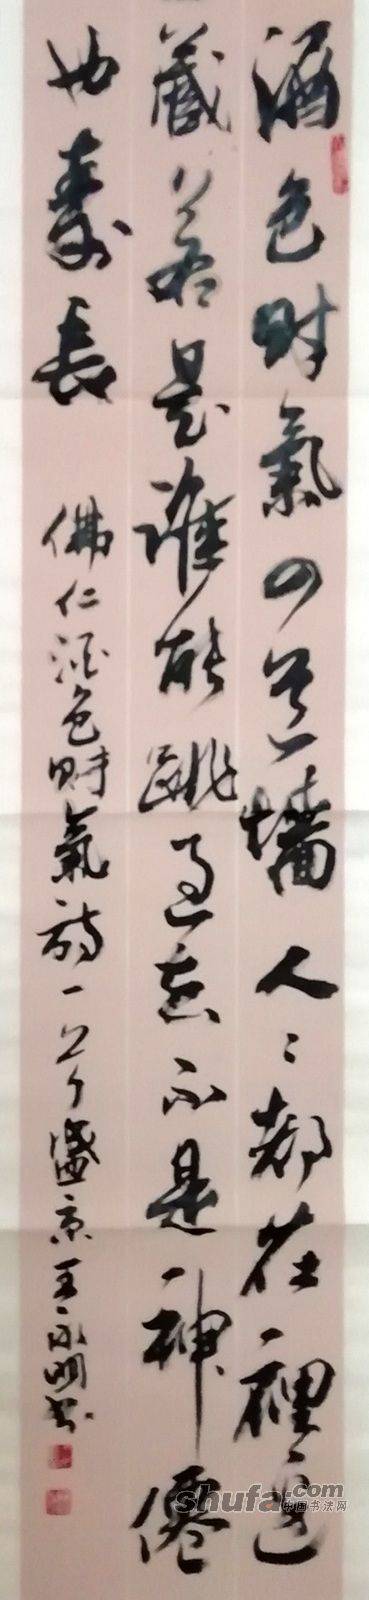 酒色财氣四道墙人々都在裡邊
藏若是誰能跳過去不是神僊
也壽長
佛仁酒色财氣詩一首盛京王永明书
shufa.com
中国书法网